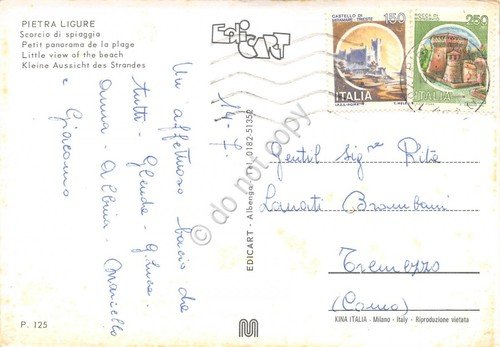 PIETRA LIGURE
Scorcio di spiaggia
Petit panorama de la plage
Little view of the beach
Kleine Aussicht des Strandes
EDICART
CASTELLO DI
MIRAMARE - TRIESTE
150
ITALIA
ROCCA DI
250
ITALIA
14-7-
Un affettuoso bacio da
tutti - Glenda - G. Luca -
Anna - Albina - Marcello
e Giacomo
EDICART - Albenga - Tel. 0182-51352
do not copy
Gentil Sigra Rita
Lanati Brambani
Tremezzo
(Como)
P. 125
M
KINA ITALIA - Milano - Italy - Riproduzione vietata